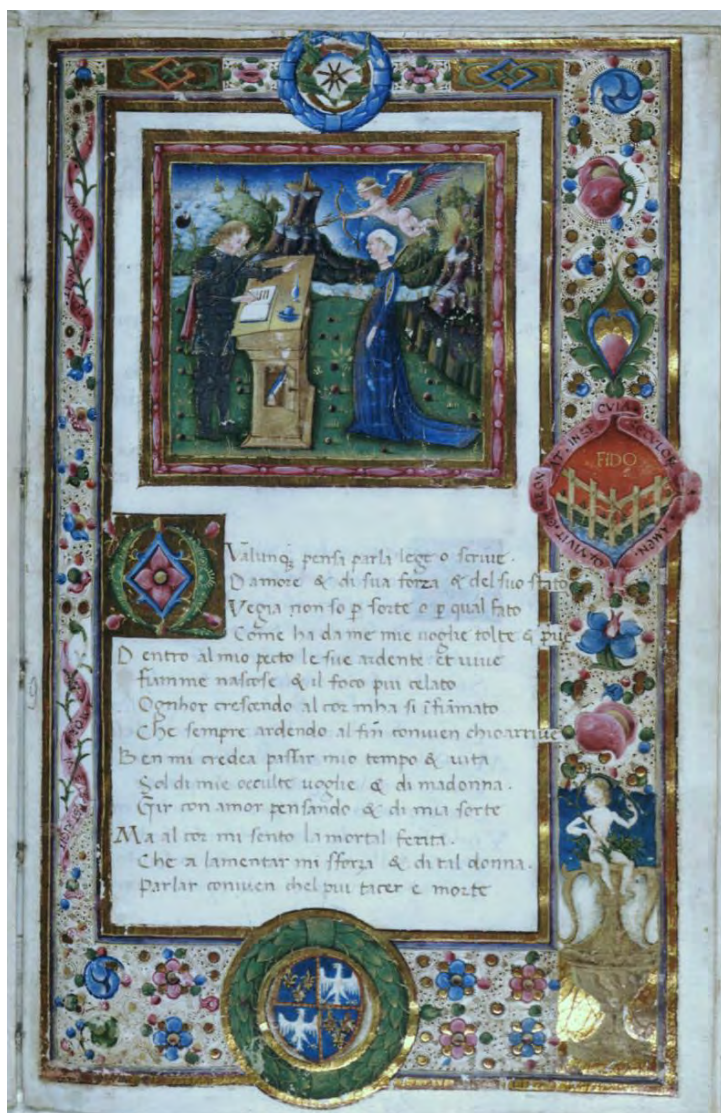 FIDO
Qvalunq; pensa parla lege o scriue.
D amore & di sua forza & del suo stato
Vegia non so p sorte o p qual fato
Come ha da me mie uoglie tolte & priue
D entro al mio pecto le sue ardente et uiue
fiamme nascose & il foco piu celato
Ognhor crescendo al cor mha si ifiamato
Che sempre ardendo al fin conuien chioarriue
B en mi credea passar mio tempo & uita
Sol di mie occulte uoglie & di madonna.
Gir con amor pensando & di mia sorte
Ma al cor mi sento la mortal ferita.
Che a lamentar mi sforza & di tal donna.
Parlar conuien chel piu tacer e morte